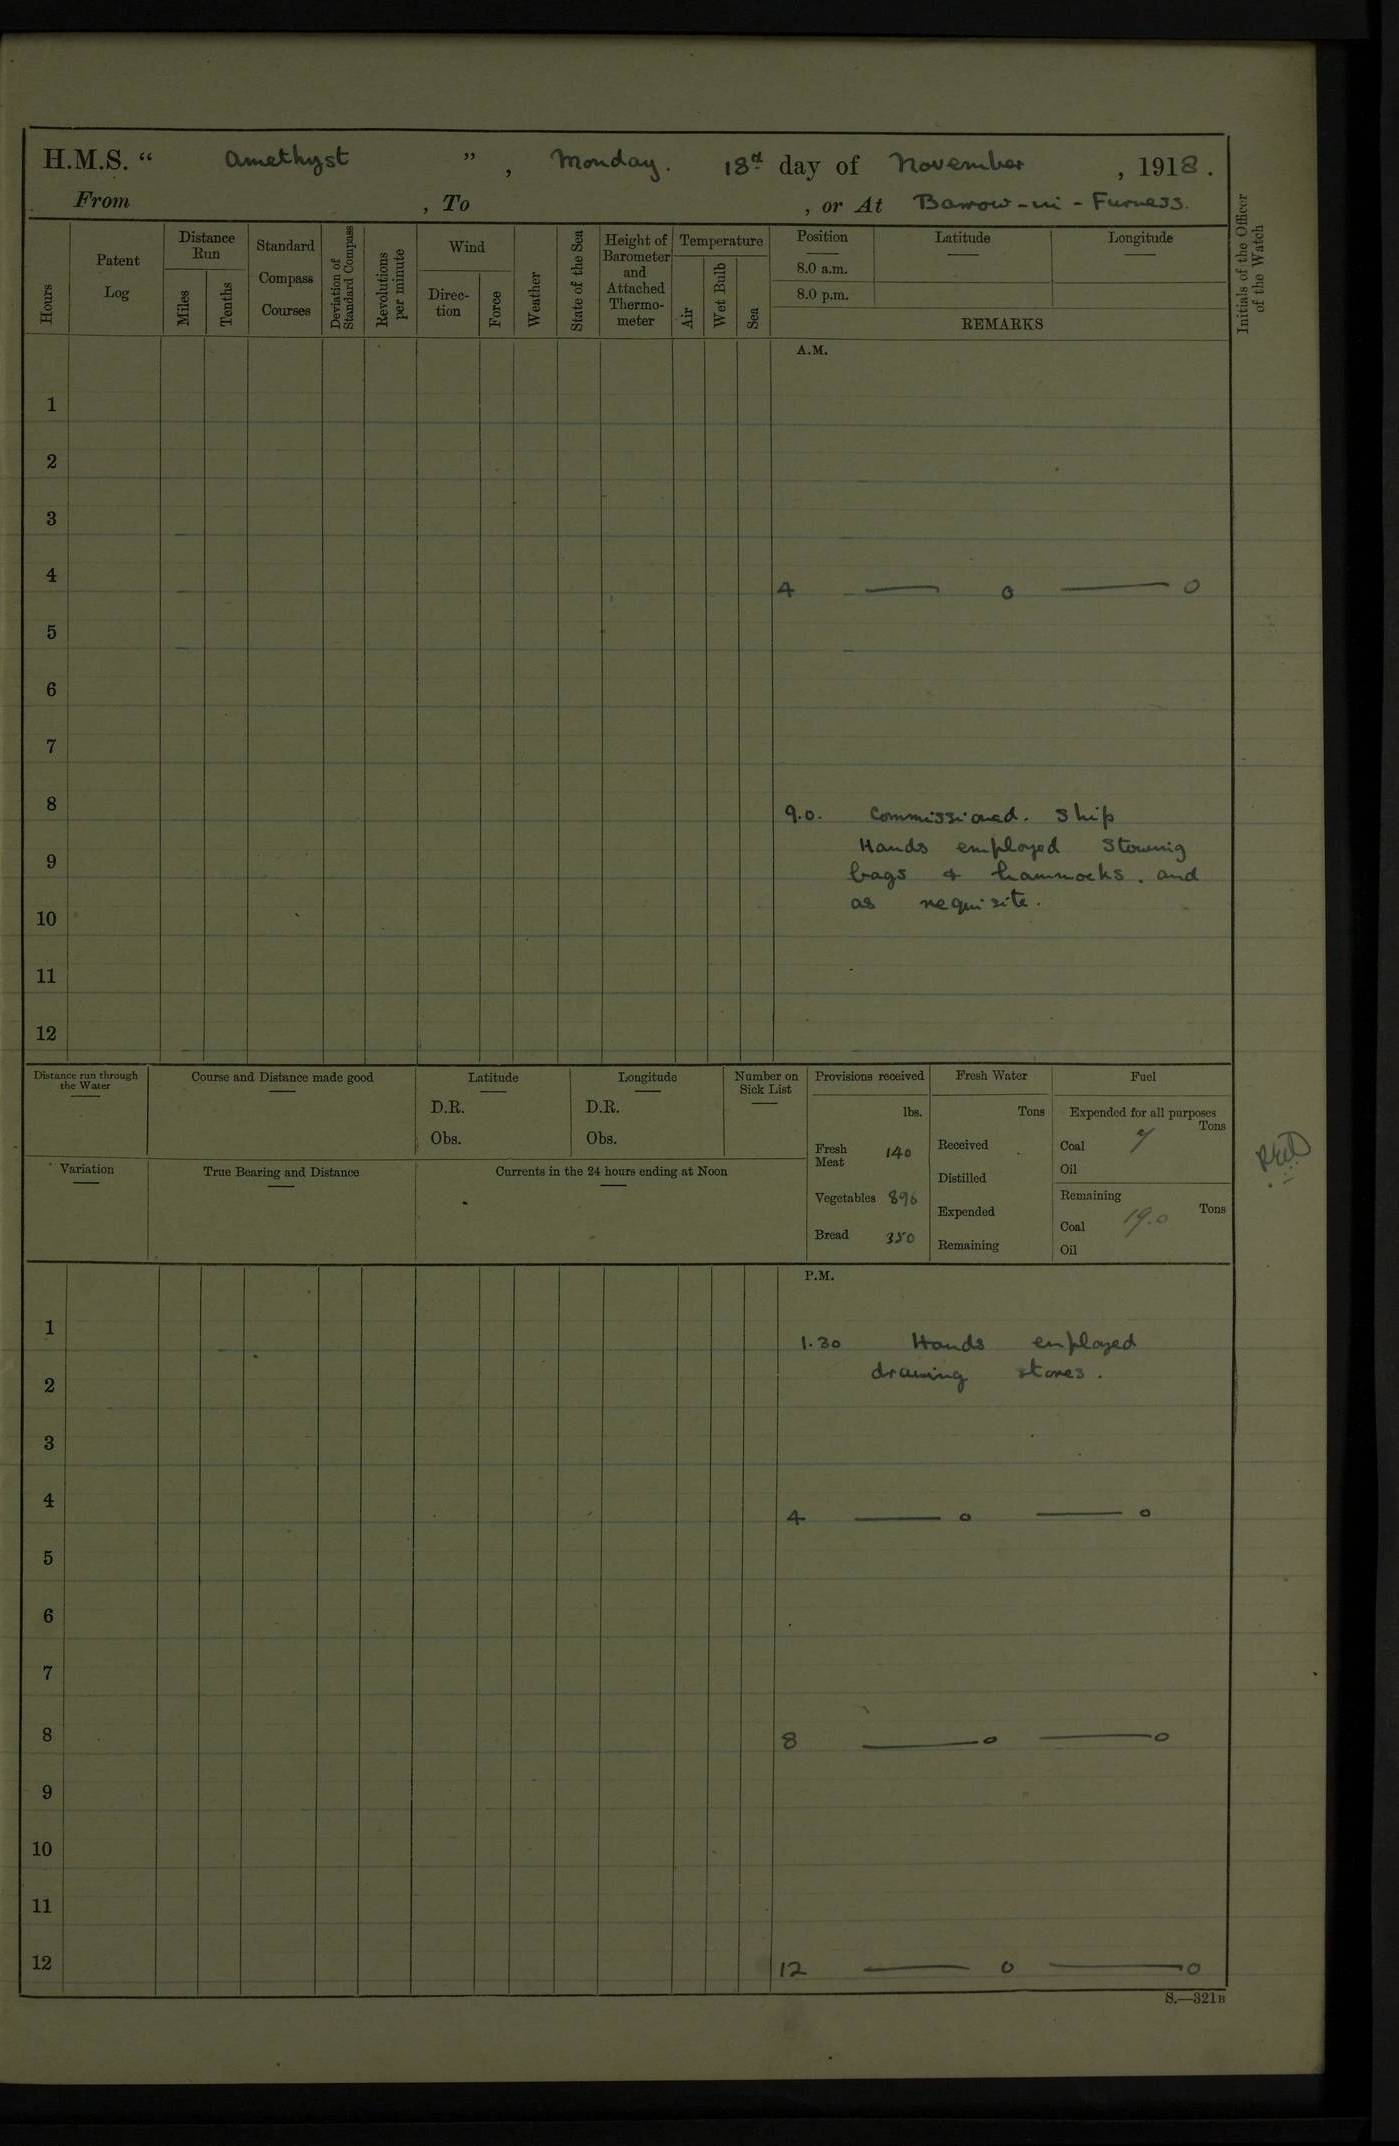 H.M.S. “ Amethyst ”, Monday. 18th day of November, 1918.
From , To , or At Barrow-in-Furness.
Hours
Patent Log
Distance Run
Miles
Tenths
Standard Compass Courses
Deviation of Standard Compass
Revolutions per minute
Wind
Direc-tion
Force
Weather
State of the Sea
Height of Barometer and Attached Thermo-meter
Temperature
Air
Wet Bulb
Sea
Position Latitude Longitude
8.0 a.m.
8.0 p.m.
REMARKS
Initials of the Officer of the Watch
A.M.
1
2
3
4 4 — o — o
5
6
7
8 9.0. Commissioned. Ship
Hands employed stowing
9 bags & hammocks. and
10 as requisite.
11
12
Distance run through the Water
Course and Distance made good
Latitude
D.R.
Obs.
Longitude
D.R.
Obs.
Number on Sick List
Variation
True Bearing and Distance
Currents in the 24 hours ending at Noon
Provisions received
lbs.
Fresh Meat 140
Vegetables 896
Bread 350
Fresh Water
Tons
Received
Distilled
Expended
Remaining
Fuel
Expended for all purposes
Tons
Coal 7
Oil
Remaining
Tons
Coal 190
Oil
P.M.
1 1.30 Hands employed
2 drawing stores.
3
4 4 — o — o
5
6
7
8 8 — o — o
9
10
11
12 12 — o — o
S.—321B